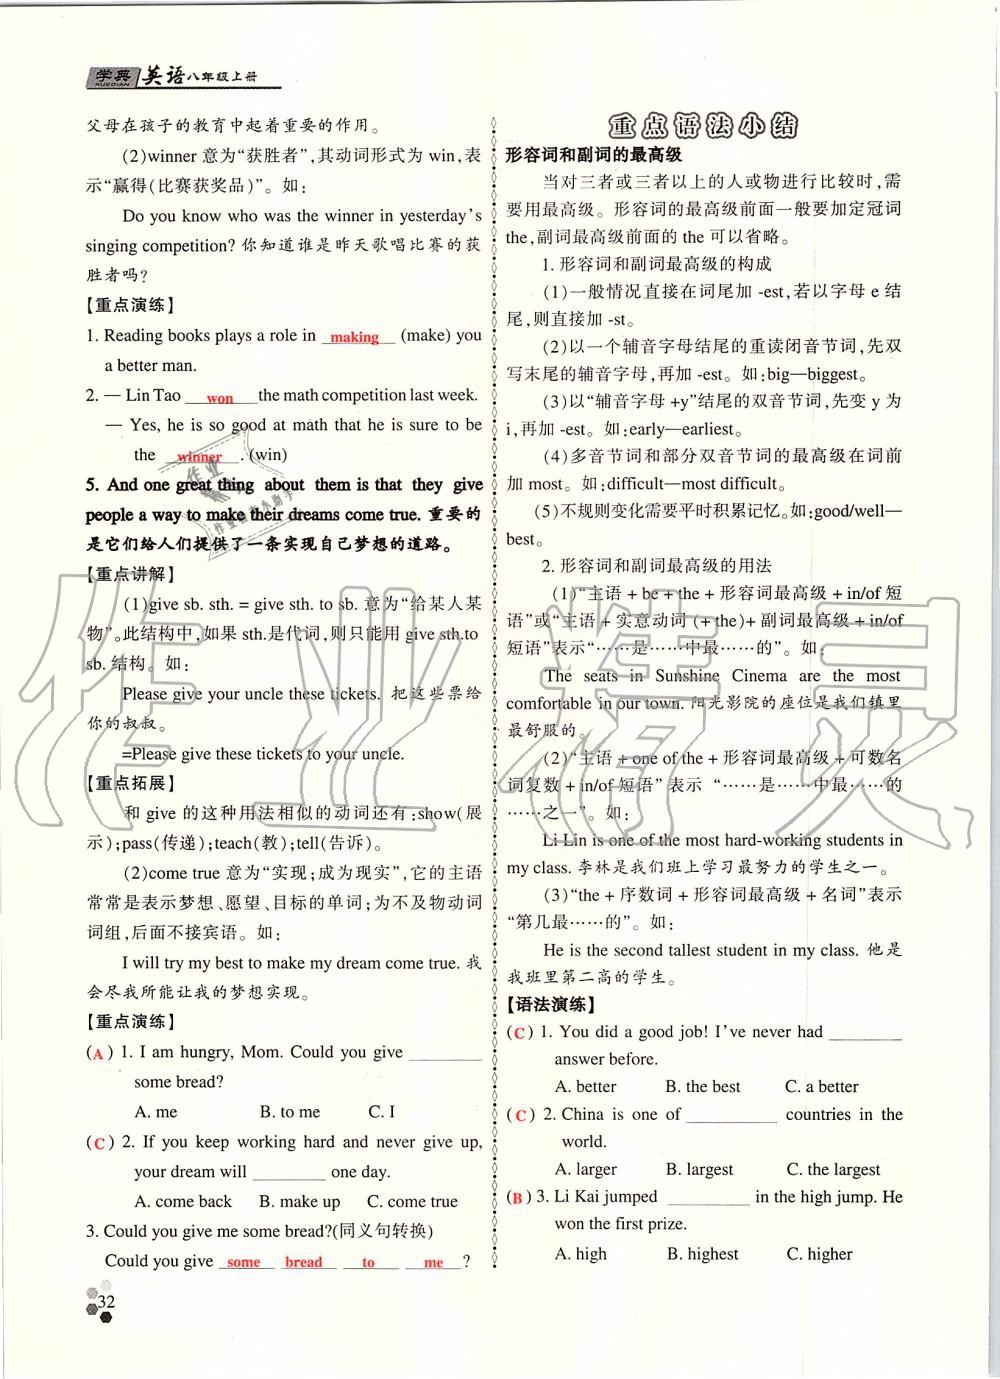 学典 英语八年级上册
XUEDIAN
父母在孩子的教育中起着重要的作用。
(2)winner 意为“获胜者”,其动词形式为 win,表
示“赢得(比赛获奖品)”。如:
Do you know who was the winner in yesterday's
singing competition? 你知道谁是昨天歌唱比赛的获
胜者吗?
【重点演练】
1. Reading books plays a role in making (make) you
a better man.
2. — Lin Tao won the math competition last week.
— Yes, he is so good at math that he is sure to be
the winner . (win)
5. And one great thing about them is that they give
people a way to make their dreams come true. 重要的
是它们给人们提供了一条实现自己梦想的道路。
【重点讲解】
(1)give sb. sth. = give sth. to sb. 意为“给某人某
物”。此结构中,如果 sth.是代词,则只能用 give sth.to
sb. 结构。如:
Please give your uncle these tickets. 把这些票给
你的叔叔。
=Please give these tickets to your uncle.
【重点拓展】
和 give 的这种用法相似的动词还有:show(展
示);pass(传递);teach(教);tell(告诉)。
(2)come true 意为“实现;成为现实”,它的主语
常常是表示梦想、愿望、目标的单词;为不及物动词
词组,后面不接宾语。如:
I will try my best to make my dream come true. 我
会尽我所能让我的梦想实现。
【重点演练】
(A) 1. I am hungry, Mom. Could you give ________
some bread?
A. me B. to me C. I
(C) 2. If you keep working hard and never give up,
your dream will ________ one day.
A. come back B. make up C. come true
3. Could you give me some bread?(同义句转换)
Could you give some bread to me ?
32
重点语法小结
形容词和副词的最高级
当对三者或三者以上的人或物进行比较时,需
要用最高级。形容词的最高级前面一般要加定冠词
the,副词最高级前面的 the 可以省略。
1. 形容词和副词最高级的构成
(1)一般情况直接在词尾加 -est,若以字母 e 结
尾,则直接加 -st。
(2)以一个辅音字母结尾的重读闭音节词,先双
写末尾的辅音字母,再加 -est。如:big—biggest。
(3)以“辅音字母 +y”结尾的双音节词,先变 y 为
i,再加 -est。如:early—earliest。
(4)多音节词和部分双音节词的最高级在词前
加 most。如:difficult—most difficult。
(5)不规则变化需要平时积累记忆。如:good/well—
best。
2. 形容词和副词最高级的用法
(1)“主语 + be + the + 形容词最高级 + in/of 短
语”或“主语 + 实意动词 (+ the)+ 副词最高级 + in/of
短语”表示“……是……中最……的”。如:
The seats in Sunshine Cinema are the most
comfortable in our town. 阳光影院的座位是我们镇里
最舒服的。
(2)“主语 + one of the + 形容词最高级 + 可数名
词复数 + in/of 短语”表示 “……是……中最……的
……之一”。如:
Li Lin is one of the most hard-working students in
my class. 李林是我们班上学习最努力的学生之一。
(3)“the + 序数词 + 形容词最高级 + 名词”表示
“第几最……的”。如:
He is the second tallest student in my class. 他是
我班里第二高的学生。
【语法演练】
(C) 1. You did a good job! I've never had ________
answer before.
A. better B. the best C. a better
(C) 2. China is one of ________ countries in the
world.
A. larger B. largest C. the largest
(B) 3. Li Kai jumped ________ in the high jump. He
won the first prize.
A. high B. highest C. higher
作业精灵